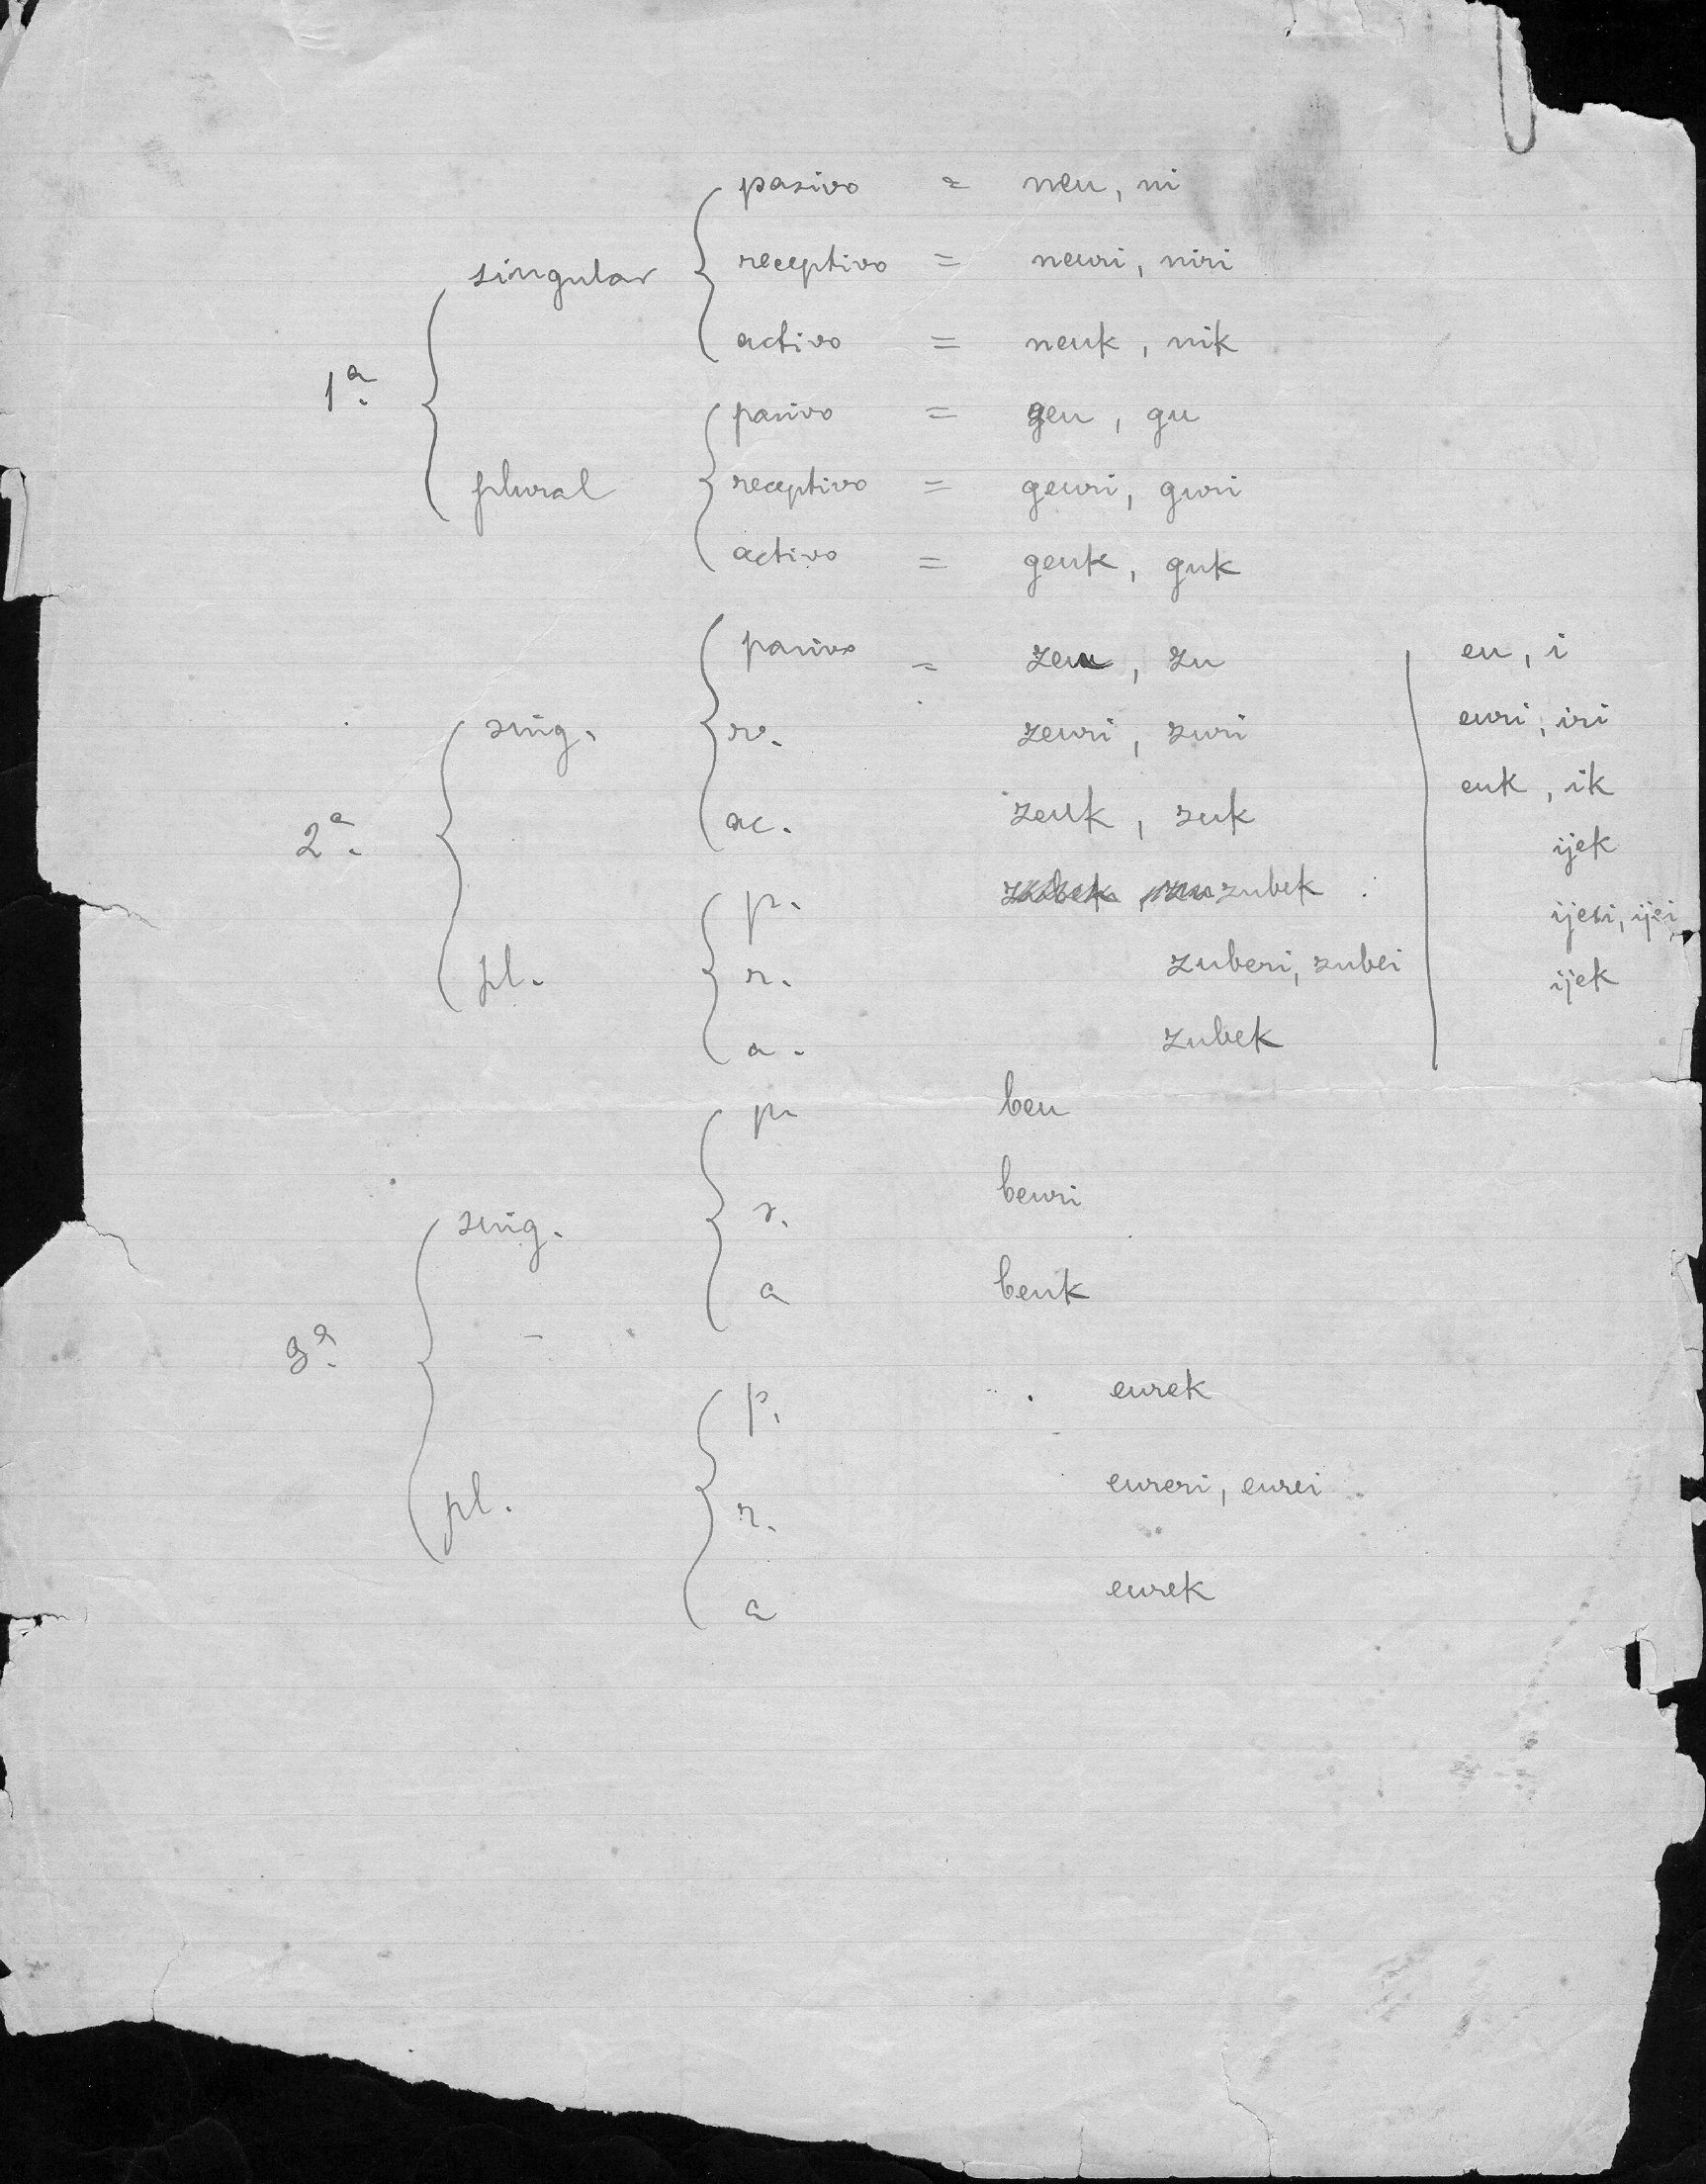 pasivo = neu, ni
singular receptivo = neuri, niri
activo = neuk, nik
1ª.
pasivo = geu, gu
plural receptivo = geuri, guri
activo = geuk, guk
pasivo = zeu, zu eu, i
sing. r. zeuri, zuri euri, iri
ac. zeuk, zuk euk, ik
2ª.
ijek
p. zubek
ijeri, ijei
pl. r. zuberi, zubei
ijek
a. zubek
p. beu
sing. r. beuri
a beuk
3ª.
p. eurek
pl. r. eureri, eurei
a eurek